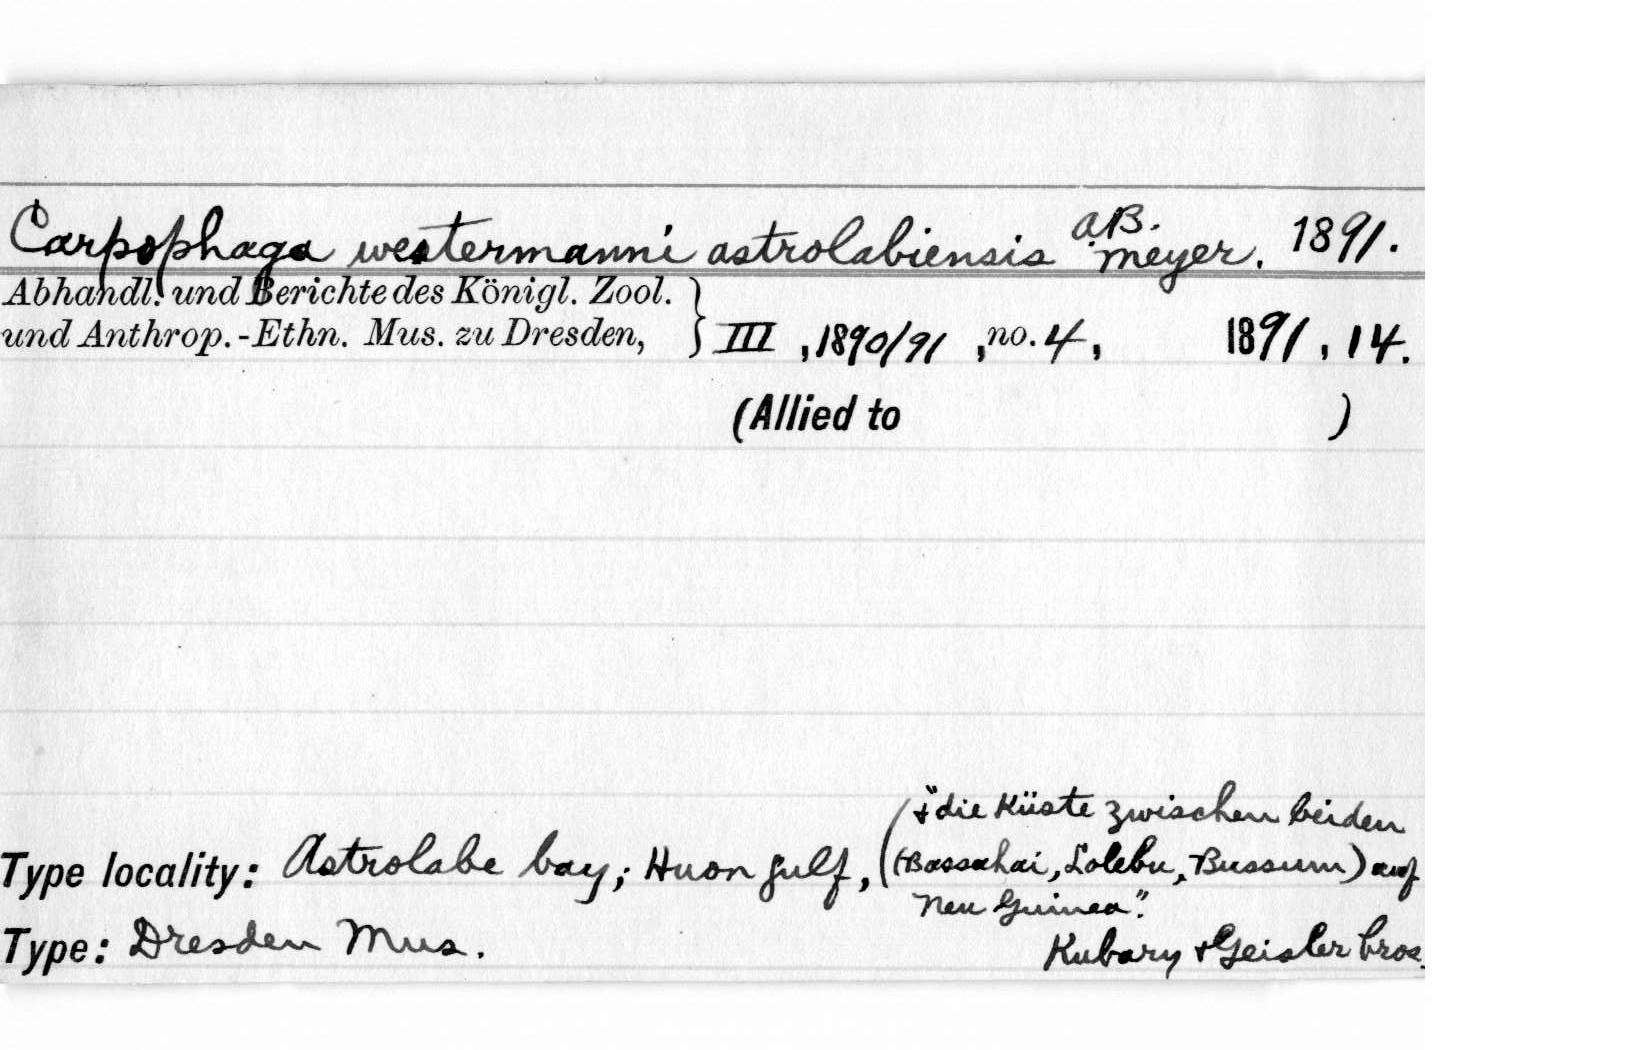 Carpophaga westermanni astrolabiensis A.B. Meyer. 1891.
Abhandl. und Berichte des Königl. Zool.
und Anthrop.-Ethn. Mus. zu Dresden, } III, 1890/91, no. 4, 1891, 14.
(Allied to )
"+ die Küste zwischen beiden
Type locality: Astrolabe bay; Huon gulf, ((Bassahai, Lolebu, Bussum) auf
Neu Guinea".
Type: Dresden Mus. Kubary + Geisler bros.